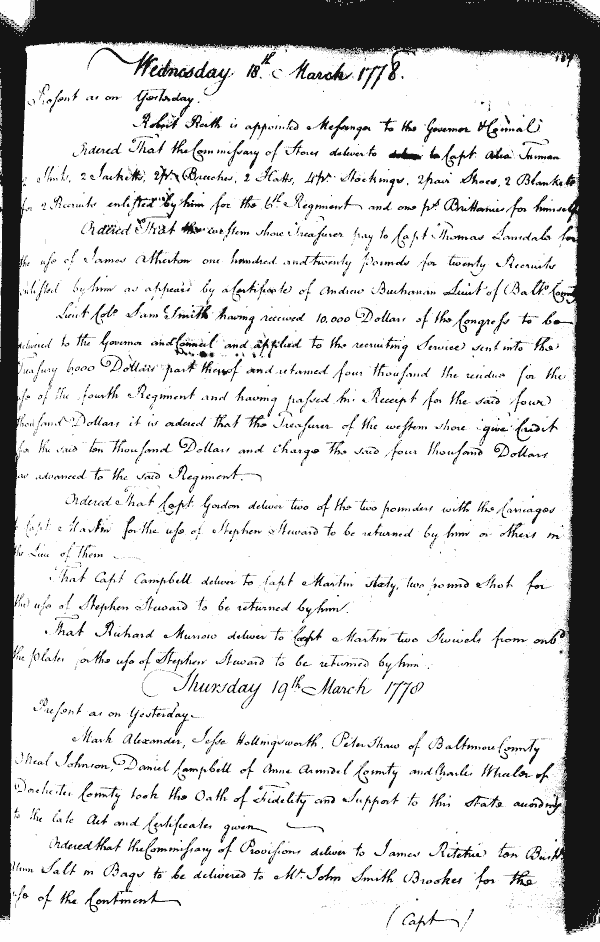 Wednesday 18th March 1778.
Present as on Yesterday.
Robert Reith is appointed Messenger to the Governor & Council
Ordered That the Commissary of Stores deliver to Capt Alex Truman
Shirts, 2 Jacketts, 2 pr Breeches, 2 Hatts, 4 pr Stockings, 2 pair Shoes, 2 Blankets
for 2 Recruits enlisted by him for the 6th Regiment and one pr Brittanies for himself
Ordered That the western shore Treasurer pay to Capt Thomas Lansdale for
the use of James Atherton one hundred and twenty pounds for twenty Recruits
enlisted by him as appears by a Certificate of Andrew Buchanan Lieut of Balto County
Lieut Colo Sam Smith having received 10.000 Dollars of the Congress to be
delivered to the Governor and Council and applied to the recruiting Service sent into the
Treasury 6,000 Dollars part thereof and retained four thousand the residue for the
use of the fourth Regiment and having passed his Receipt for the said four
thousand Dollars it is ordered that the Treasurer of the western shore give Credit
for the said ten thousand Dollars and charge the said four thousand Dollars
as advanced to the said Regiment.
Ordered That Capt. Gordon deliver two of the two pounders with the Carriages
to Capt Martin for the use of Stephen Steward to be returned by him or others in
the Lieu of them
That Capt Campbell deliver to Capt Martin sixty, two pound Shot for
the use of Stephen Steward to be returned by him.
That Richard Murrow deliver to Capt Martin two Swivels from onbd
the Plater for the use of Stephen Steward to be returned by him.
Thursday 19th March 1778
Present as on Yesterday
Mark Alexander, Jesse Hollingsworth, Peter Shaw of Baltimore County
Neal Johnson, Daniel Campbell of Anne Arundel County and Charles Wheeler of
Dorchester County took the Oath of Fidelity and Support to this State according
to the late Act and Certificates given
Ordered that the Commissary of Provisions deliver to James Ritchie ten Bushls
Allum Salt in Bags to be delivered to Mr. John Smith Brookes for the
use of the Continent
(Capt)